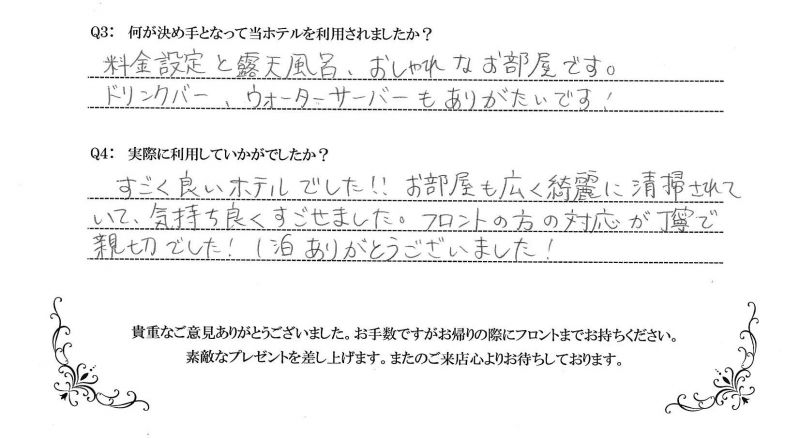 Q3: 何が決め手となって当ホテルを利用されましたか？
料金設定と露天風呂、おしゃれなお部屋です。
ドリンクバー、ウォーターサーバーもありがたいです!
Q4: 実際に利用していかがでしたか？
すごく良いホテルでした!! お部屋も広く綺麗に清掃されて
いて、気持ち良くすごせました。フロントの方の対応が丁寧で
親切でした! 1泊ありがとうございました!
貴重なご意見ありがとうございました。お手数ですがお帰りの際にフロントまでお持ちください。
素敵なプレゼントを差し上げます。またのご来店心よりお待ちしております。